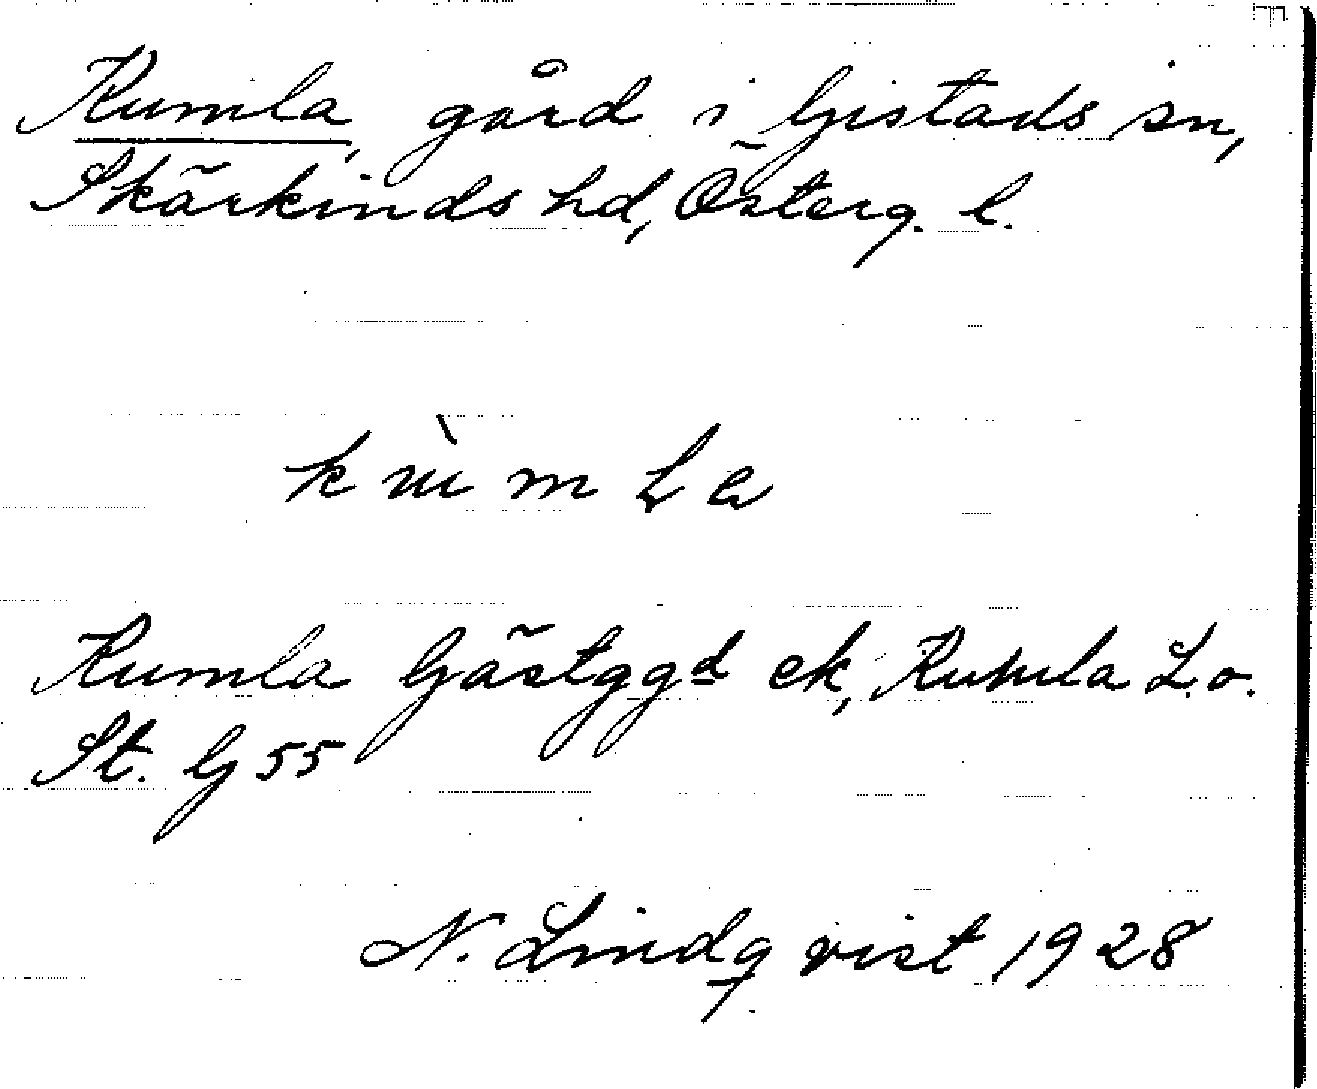 Kumla, gård i Gistads sn,
Skärkinds hd, Österg. l.
Kumla Gästggd ek, Kumla L.o.
St. G 55
N. Lindqvist 1928